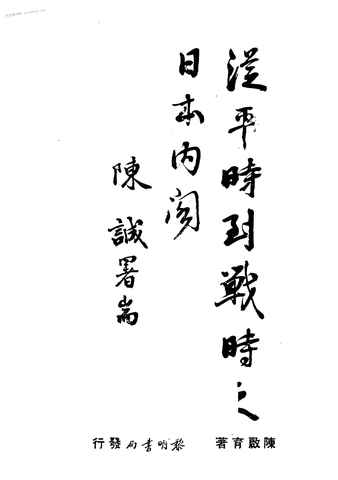 從平時到戰時之
日本內阁
陳誠署耑
陳啟育著
黎明書局發行